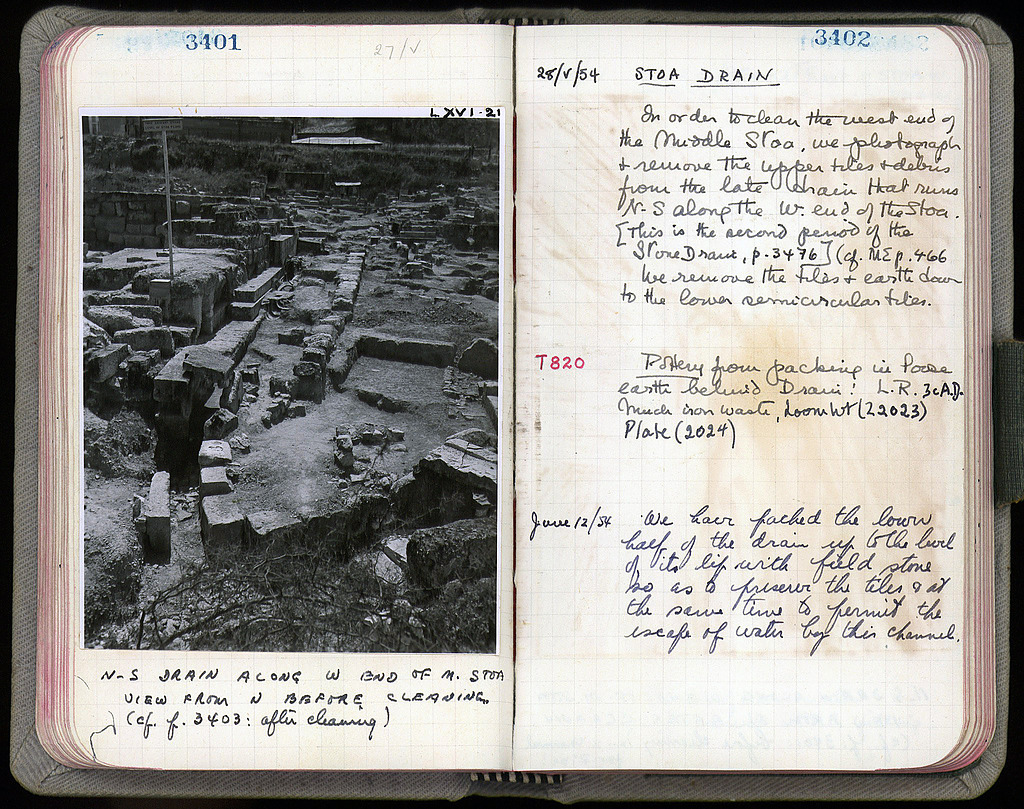 3401
27/V
LXVI-21
N-S DRAIN ALONG W END OF M. STOA
VIEW FROM N BEFORE CLEANING
(cf. p. 3403: after cleaning)
3402
28/V/54 STOA DRAIN
In order to clean the west end of
the Middle Stoa, we photograph
+ remove the upper tiles + debris
from the late drain that runs
N-S along the W. end of the Stoa.
[This is the second period of the
Stone Drain, p. 3476] (cf. ΜΣ p. 466
We remove the tiles + earth down
to the lower semicircular tiles.
T820 Pottery from packing in loose
earth behind Drain: L.R. 3c A.D.
Much iron waste, Loom Wt (2023)
Plate (2024)
June 12/54 We have packed the lower
half of the drain up to the level
of its lip with field stone
so as to preserve the tiles & at
the same time to permit the
escape of water by this channel.